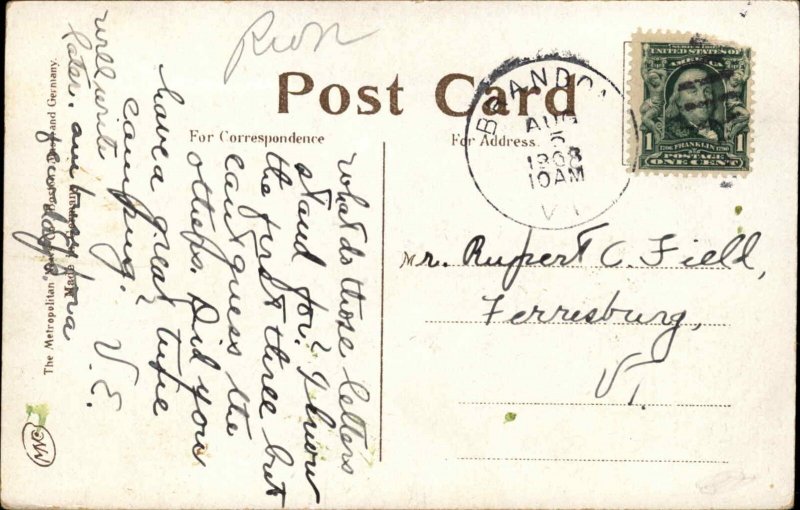 Post Card
For Correspondence
For Address.
BRANDON
AUG
5
1908
10AM
VT
SERIES 1902
UNITED STATES OF
AMERICA
1706 FRANKLIN 1790
1 1
POSTAGE
ONE CENT
Mr. Rupert C. Field,
Ferrisburg,
VT.
What do those letters
stand for? I know
the first three but
can't guess the
others. Did you
have a great time
camping?
V. E.
will write
later. am
The Metropolitan Boston and Germany.
Made